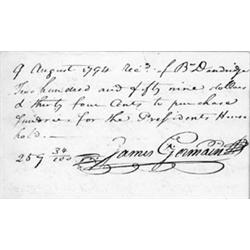 9 August 1794 Rec'd of Bw Dandridge
Two hundred and fifty nine dollars
& thirty four Cents to purchase
Sundries for the Presidents House
hold.—
259 34/100 James Germain